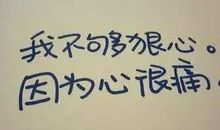 我不够狠心。
因为心很痛.